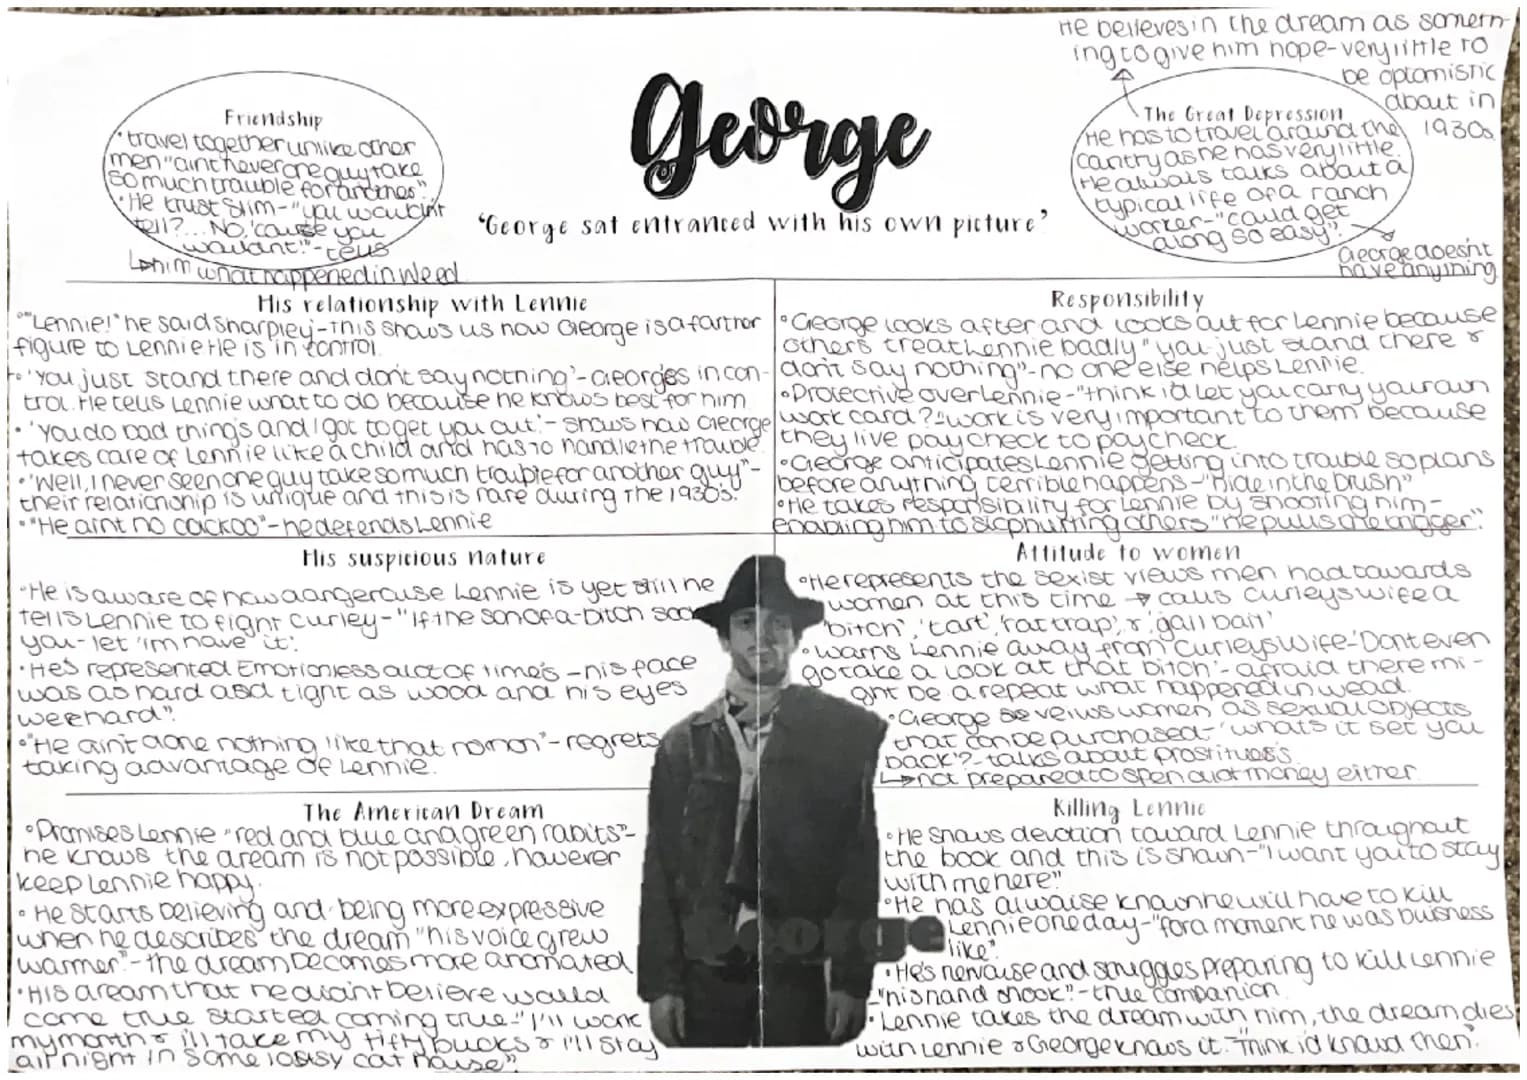 George
'George sat entranced with his own picture'
Friendship
• travel together unlike other
men "aint never one guy take
so much trouble for another"
• He trust Slim - "you wouldn't
tell?... No, 'cause you
wouldn't." - tells
him what happened in Weed
He believes in the dream as someth-
ing to give him hope - very little to
be optomistic
about in
1930s
The Great Depression
He has to travel around the
cantry as he has very little.
He always talks about a
typical life of a ranch
worker - "could get
along so easy".
George doesn't
have anything
His relationship with Lennie
• "Lennie!" he said sharpley - this shows us how George is a farther
figure to Lennie He is in control.
• 'You just stand there and don't say nothing' - George's in con-
trol. He tells Lennie what to do because he knows best for him
• 'You do bad things and I got to get you out.' - shows how George
takes care of Lennie like a child and has to handle the trouble.
• "Well, I never seen one guy take so much trouble for another guy" -
their relationship is unique and this is rare during the 1930's.
• "He aint no cuckoo" - he defends Lennie
Responsibility
• George looks after and looks out for Lennie because
others treat Lennie badly "you just stand there &
don't say nothing" - no one else helps Lennie.
• Protective over Lennie - "think i'd let you carry your own
work card? - work is very important to them because
they live paycheck to paycheck.
• George anticipates Lennie getting into trouble so plans
before anything terrible happens - "Hide in the brush"
• He takes responsibility for Lennie by shooting him -
enabling him to stop hurting others "he pulls the trigger".
His suspicious nature
• He is aware of how dangerouse Lennie is yet still he
tells Lennie to fight Curley - "If the son of a-bitch soc
you - let 'im have it'.
• He's represented Emotionless a lot of time's - his face
was as hard asd tight as wood and his eyes
weerhard".
• "He ain't done nothing like that no mon" - regrets
taking advantage of Lennie.
Attitude to women
• He represents the sexist views men had towards
women at this time → calls curleys wife a
'bitch', 'tart', 'rat trap', & 'jail bait'
• warns Lennie away from Curleys Wife - 'Dont even
go take a look at that bitch' - afraid there mi-
ght be a repeat what happened in wead.
• George veiws women as sexual objects
that can be purchased - 'what's it set you
back'? - talks about prostitues's.
not prepared to spen alot money either.
The American Dream
• Promises Lennie "red and blue and green rabits" -
he knows the dream is not possible, however
keep Lennie happy.
• He starts believing and being more expressive
when he describes the dream "his voice grew
warmer" - the dream becomes more anomated
• His dream that he didn't believe would
come true started coming true - "I'll work
my month & i'll take my fifty bucks & I'll stay
all night in some lousy cat house".
Killing Lennie
• He shows devotion toward Lennie throughout
the book and this is shown - "I want you to stay
with me here"
• He has alwaise known he will have to kill
Lennie one day - "for a moment he was buisness
like".
• He's nervouse and struggles preparing to kill Lennie
- "his hand shook" - true companion
• Lennie takes the dream with him, the dream dies
with Lennie & George knows it. "Think i'd knowd then".
George